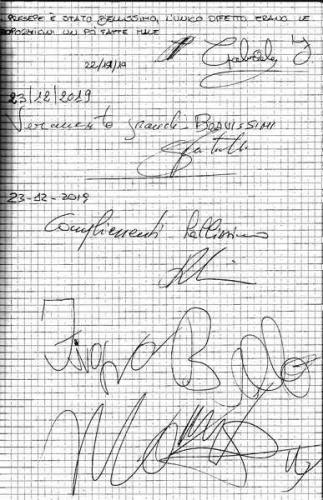 PRESEPE È STATO BELLISSIMO, L'UNICO DIFETTO ERANO LE
PROPORZIONI UN PÒ FATTE MALE
22/12/19
23/12/2019
Veramente grandi BRAVISSIMI
23-12-2019
Complimenti bellissimo
Troppo Bello